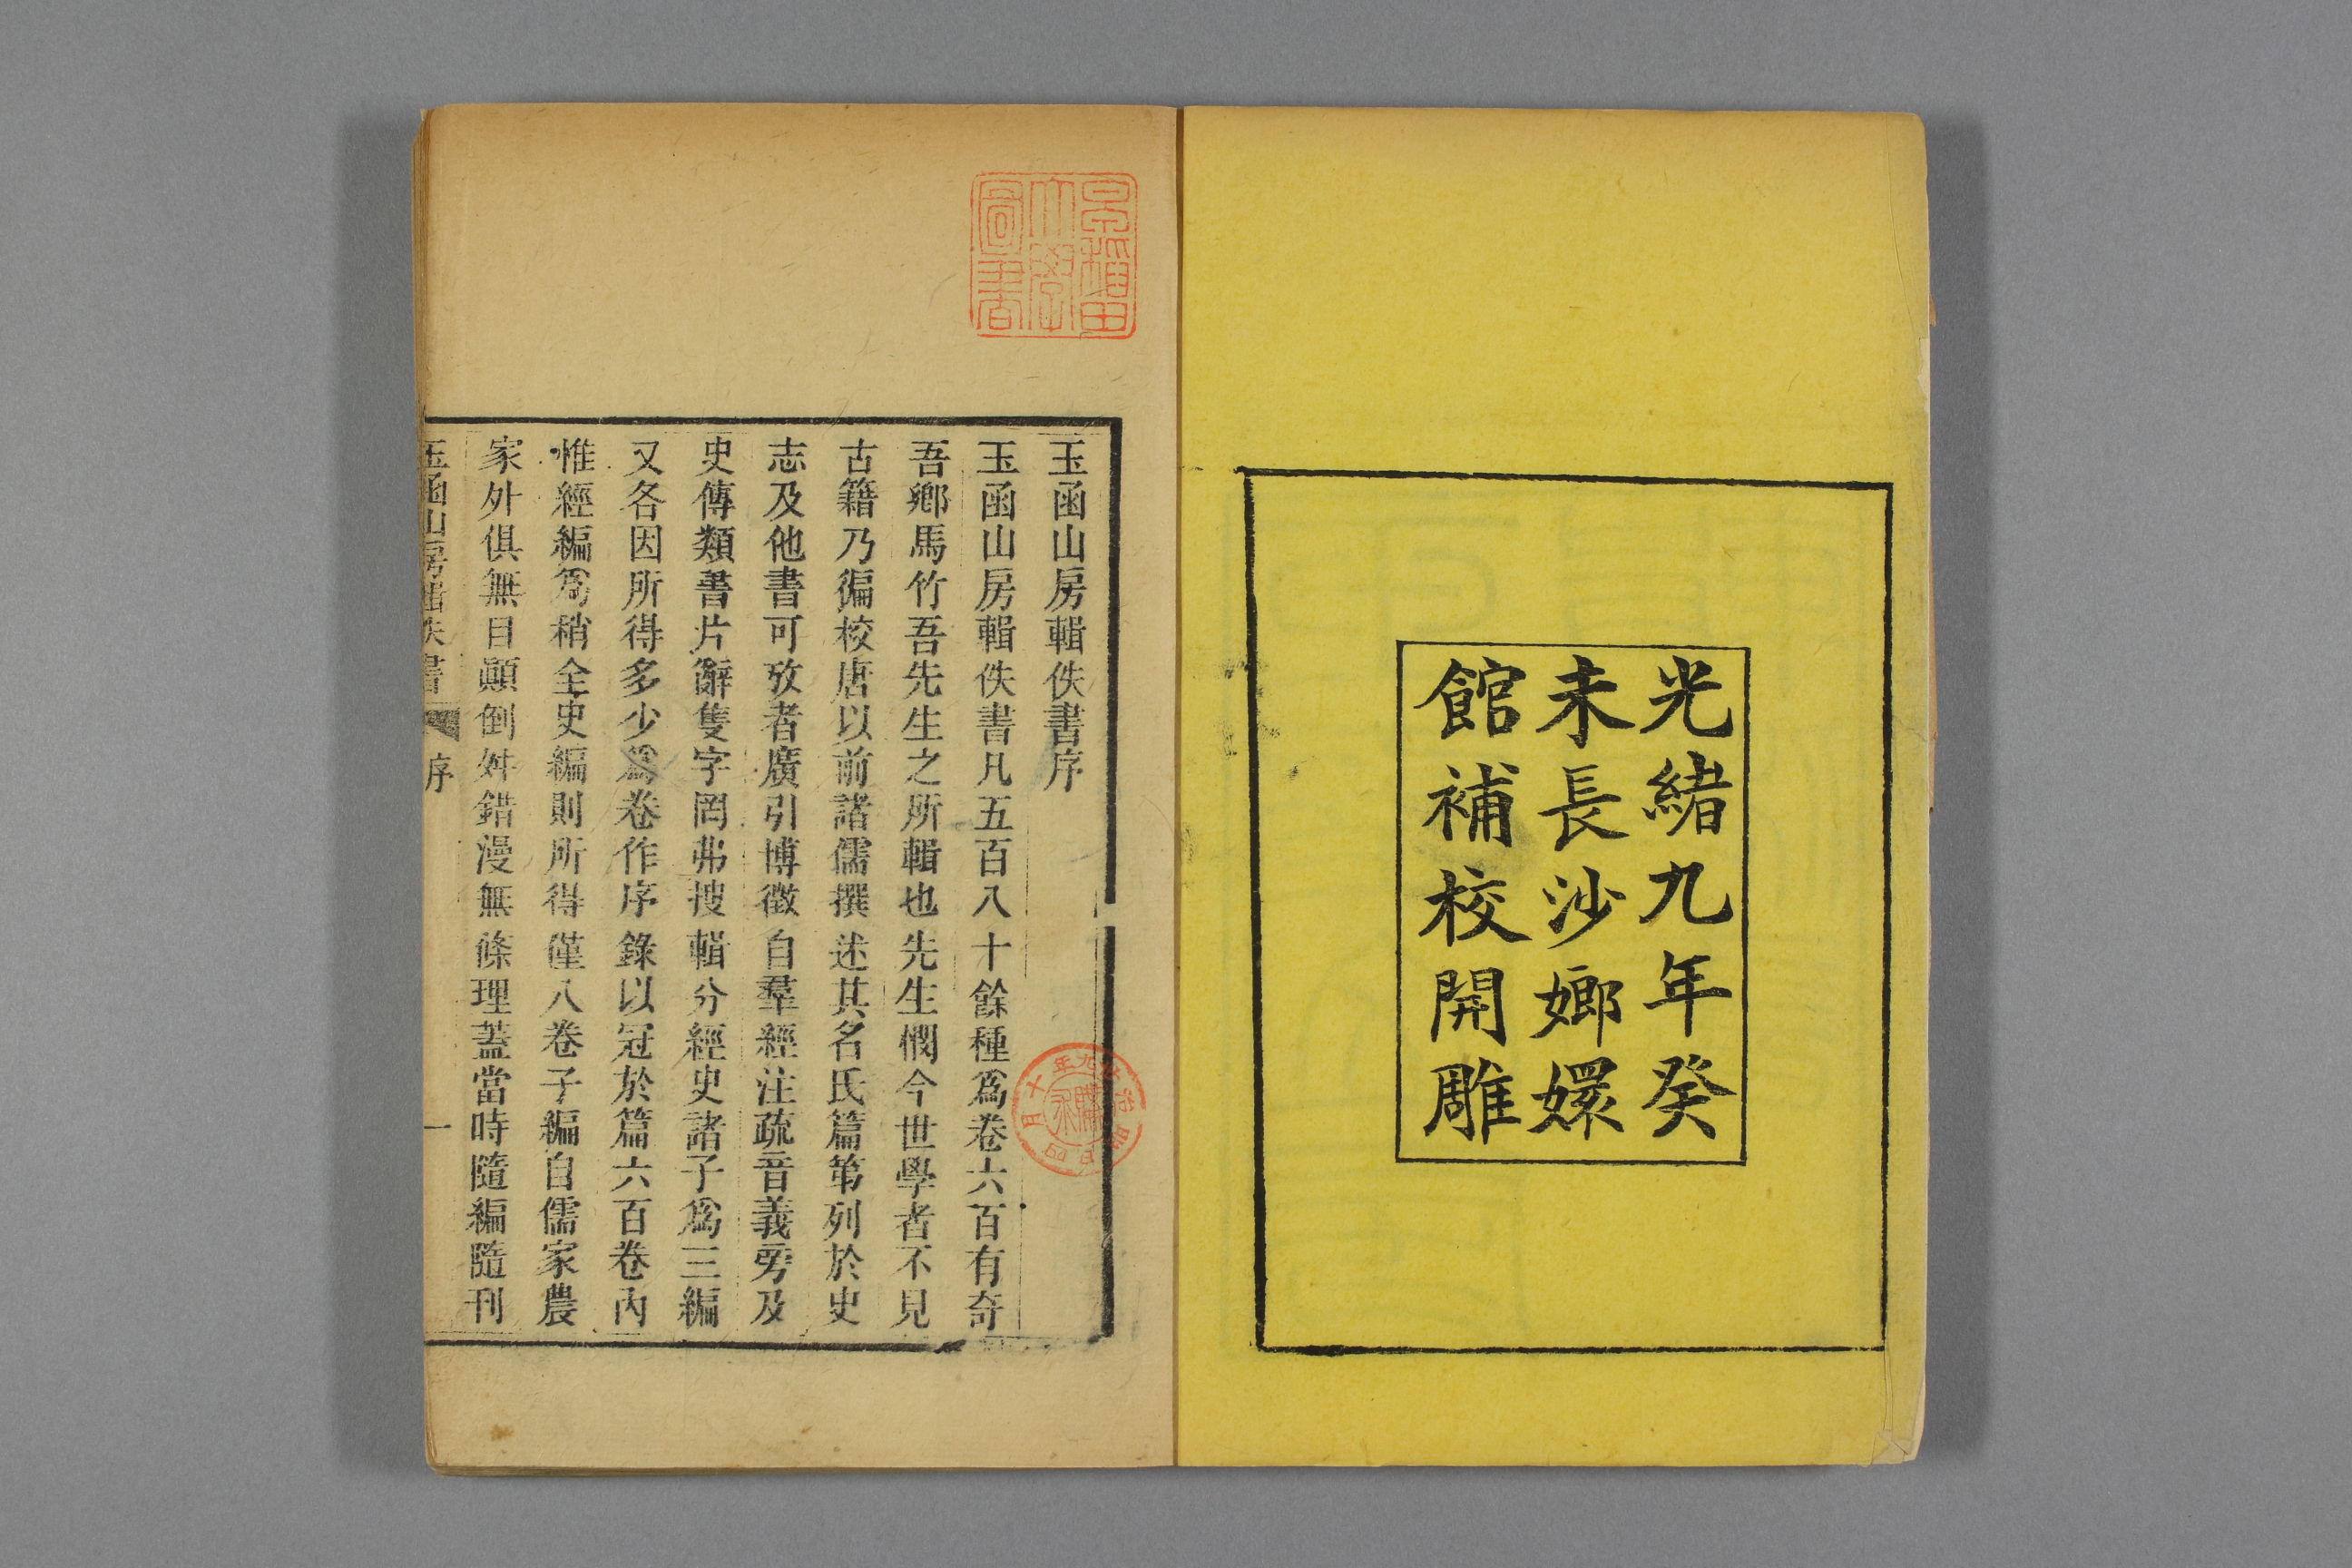 光緒九年癸
未長沙嫏嬛
館補校開雕
早稲田
大學
圖書
玉函山房輯佚書序
玉函山房輯佚書凡五百八十餘種爲卷六百有奇
吾鄉馬竹吾先生之所輯也先生憫今世學者不見
古籍乃徧校唐以前諸儒撰述其名氏篇第列於史
志及他書可攷者廣引博徵自羣經注疏音義旁及
史傳類書片辭隻字罔弗搜輯分經史諸子爲三編
又各因所得多少爲卷作序錄以冠於篇六百卷內
惟經編爲稍全史編則所得僅八卷子編自儒家農
家外俱無目顚倒舛錯漫無條理蓋當時隨編隨刊
玉函山房輯佚書
序
一